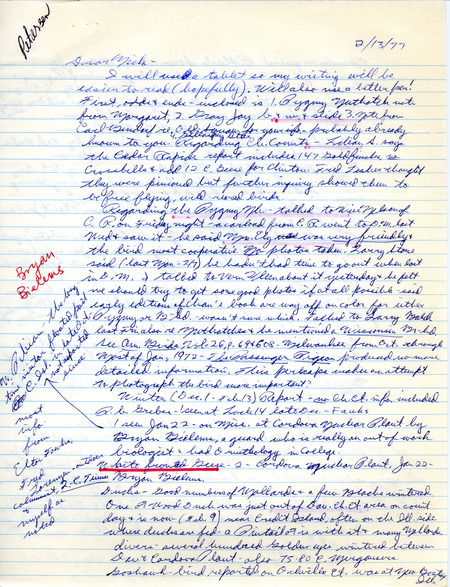 Petersen
2/13/77
Dear Nick -
I will use a tablet so my writing will be
easier to read (hopefully). Will also use a better pen!
First, odds & ends - inclosed is 1. Pygmy Nuthatch note
from Margaret, 2. Gray Jay 3. Note from
Carl Bendorf for your info - probably already
known to you. Regarding Cl. County - Lillian S. says
the Cedar Rapids report includes 147 Goldfinches no
Crossbills & add 12 C. Geese for Clinton. Fred Lesher thought
they were pinioned but further inquiry showed them to
be free flying, wild birds.
Regarding the Pygmy Nh. - talked to Nick of
C.R. on Friday night - a carload from C.R. went to D.M. last
Wed & saw it - he said Mrs. was very friendly &
the bird most cooperative. No photos taken. Larry
said (last Mon - 7th) he hadn't had time to go out when last
in D.M. I talked to Vern about it yesterday & he felt
we should try to get some good photos if at all possible - said
early editions of books are way off on color for either
Pygmy or B-hd. wasn't sure which. Talked to Larry
last Fri also re Nuthatches & he mentioned a Wisconsin Br-hd.
see Am. Birds Vol. 26, p. 69 & 608 - Milwaukee from Oct. through
most of Jan, 1972 - The Passenger Pigeon produced no more
detailed information. This perhaps makes an attempt
to photograph the bird more important?
Winter (Dec. 1 - Feb. 13) Report - no Ch. Ct. info. included
P.b. Grebe - 1 seen at Lock 14 late Dec. - Fawks
1 seen Jan 22 - on Miss. at Cordova Nuclear Plant by
Bryan Bielema, a guard who is really an out of work
biologist & had Ornithology in College.
White fronted Geese - 2 - Cordova Nuclear Plant, Jan 22 -
Bryan Bielema.
Ducks - Good numbers of Mallards & a few Blacks wintered.
One Wood Duck was just out of our ch. ct area on count
day & is now (Feb 9) near Credit Island, often on the Ill. side
where ducks are fed. A Pintail is with it & many Mallards
divers - several hundred Golden eyes wintered between
Dav. & Cordova Plant - also 75-80 C. Mergansers
Goshawk - bird reported on
Bryan
Bielema
W. Pelican
most
info
from
Elton Fawks,
Fred
Lorenzen - outdoor
columnist, Q.C. Times
myself as
noted